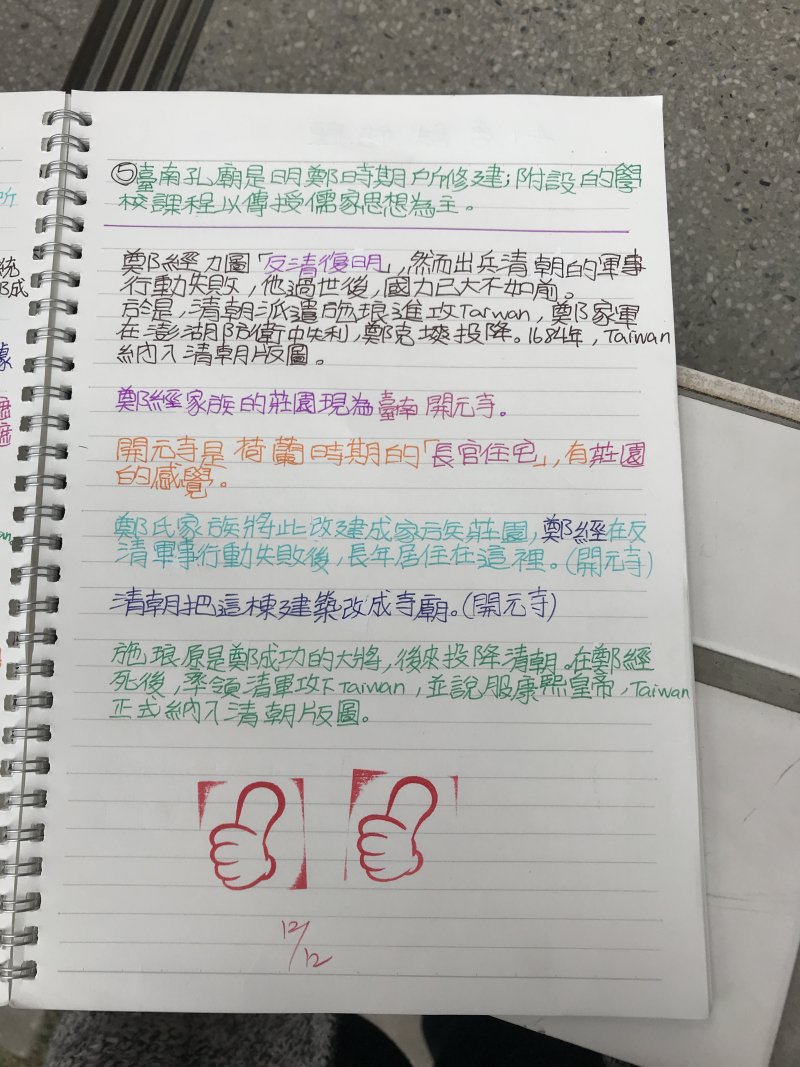 ⑤臺南孔廟是明鄭時期所修建；附設的學
校課程以傳授儒家思想為主。
鄭經力圖「反清復明」，然而出兵清朝的軍事
行動失敗，他過世後，國力已大不如前。
於是，清朝派遣施琅進攻Taiwan，鄭家軍
在澎湖防衛中失利，鄭克塽投降。1684年，Taiwan
納入清朝版圖。
鄭經家族的莊園現為臺南開元寺。
開元寺是荷蘭時期的「長官住宅」，有莊園
的感覺。
鄭氏家族將此改建成家族莊園，鄭經在反
清軍事行動失敗後，長年居住在這裡。(開元寺)
清朝把這棟建築改成寺廟。(開元寺)
施琅原是鄭成功的大將，後來投降清朝。在鄭經
死後，率領清軍攻下Taiwan，並說服康熙皇帝，Taiwan
正式納入清朝版圖。
12/12